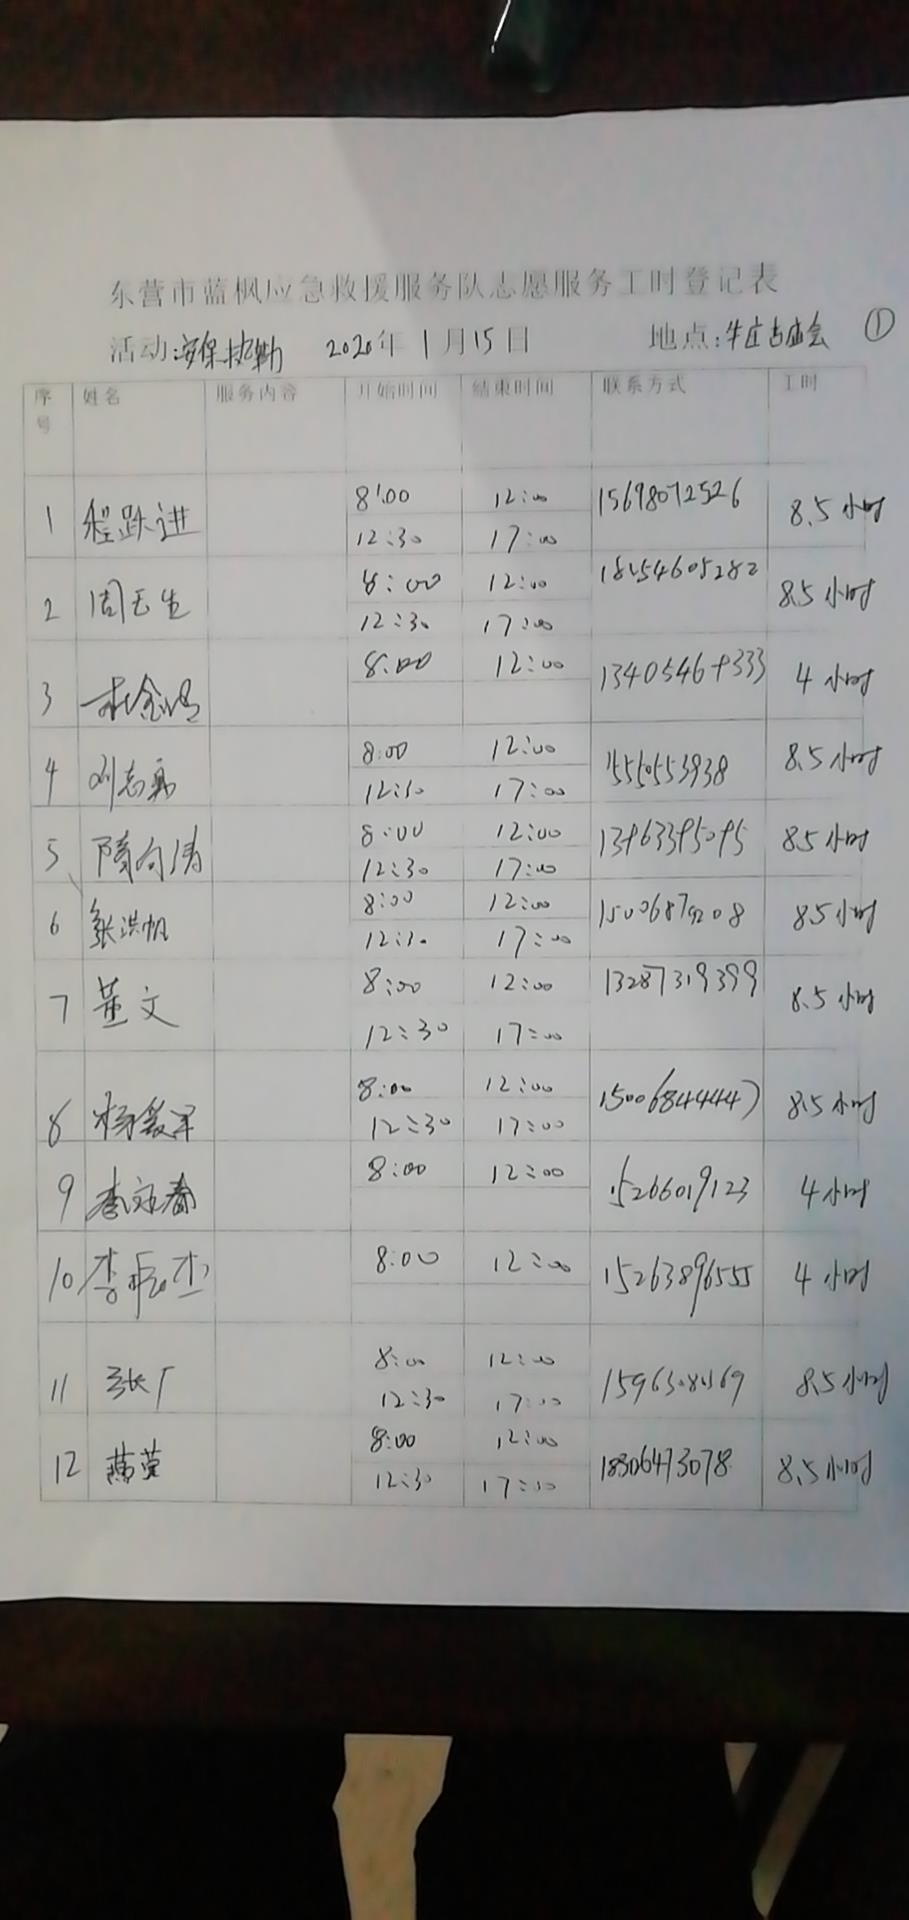 东营市蓝枫应急救援服务队志愿服务工时登记表
活动:安保执勤 2020年1月15日 地点:牛庄古庙会 ①
序号 姓名 服务内容 开始时间 结束时间 联系方式 工时
1 程跃进 8:00 12:00 15698072526 8.5小时
12:30 17:00
2 周玉生 8:00 12:00 18254605282 8.5小时
12:30 17:00
3 8:00 12:00 4小时
4 刘志勇 8:00 12:00 8.5小时
12:30 17:00
5 隋向涛 8:00 12:00 8.5小时
12:30 17:00
6 张洪帆 8:00 12:00 8.5小时
12:30 17:00
7 董文 8:00 12:00 13287319399 8.5小时
12:30 17:00
8 8:00 12:00 15006844447 8.5小时
12:30 17:00
9 8:00 12:00 15266019123 4小时
10 李振杰 8:00 12:00 15263896555 4小时
11 张广 8:00 12:00 8.5小时
12:30 17:00
12 8:00 12:00 18306473078 8.5小时
12:30 17:00